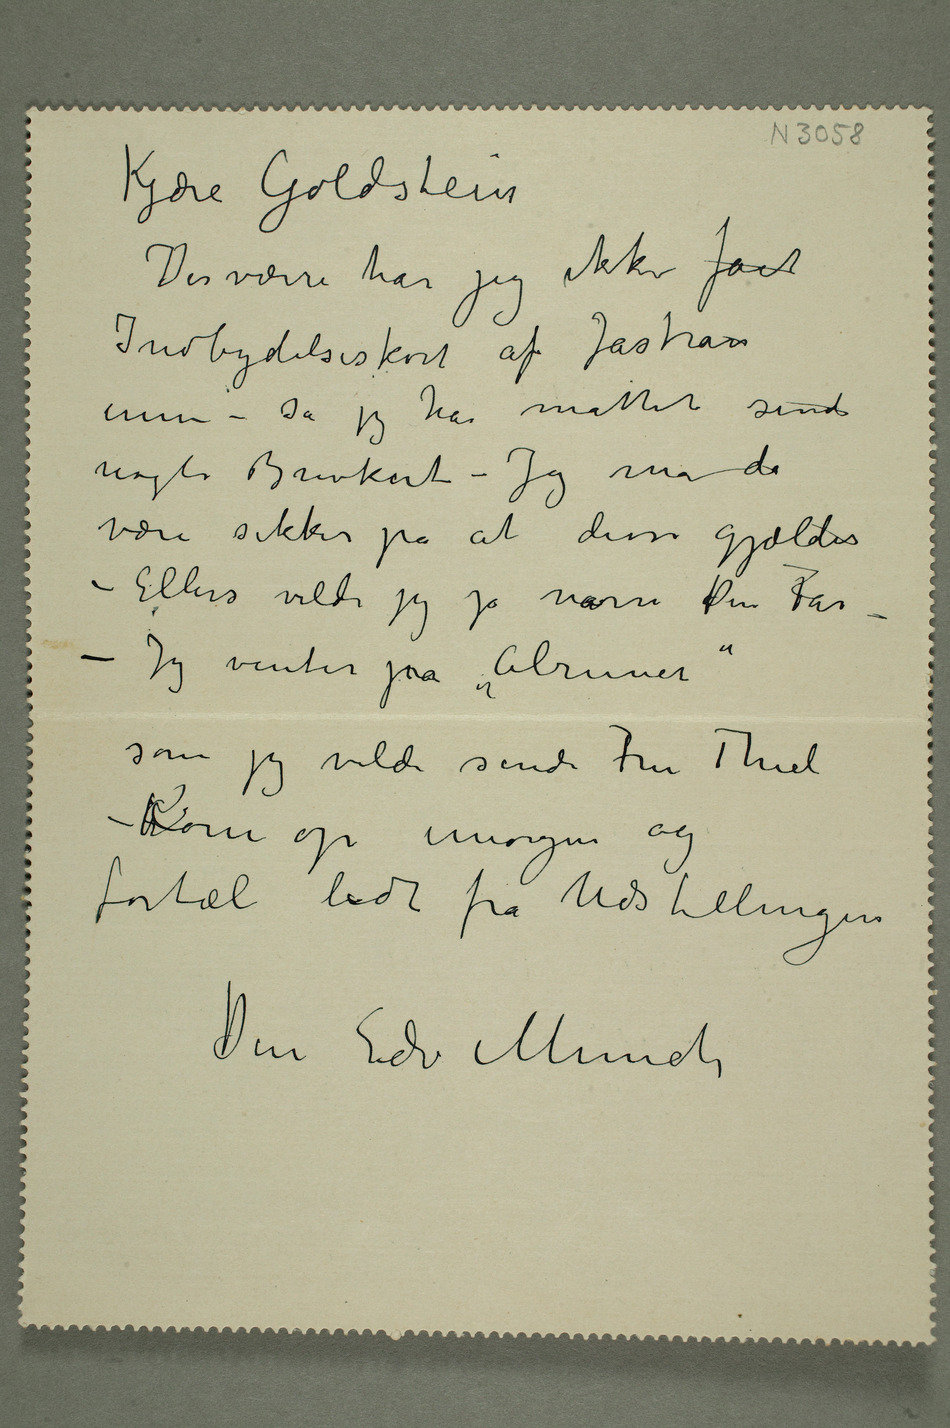 N 3058
Kjære Goldstein
Desværre har jeg ikke faet
Indbydelseskort af Jastrau
ennu – så jeg har måttet sende
nogle Brevkort – Jeg må da
være sikker på at disse gjælder
– Ellers vilde jeg jo narre Din Far –
– Jeg venter på „Alruner“
som jeg vilde sende Fru Thiel
– Kom op imorgen og
fortæl lidt fra Udstillingen
Din Edv Munch